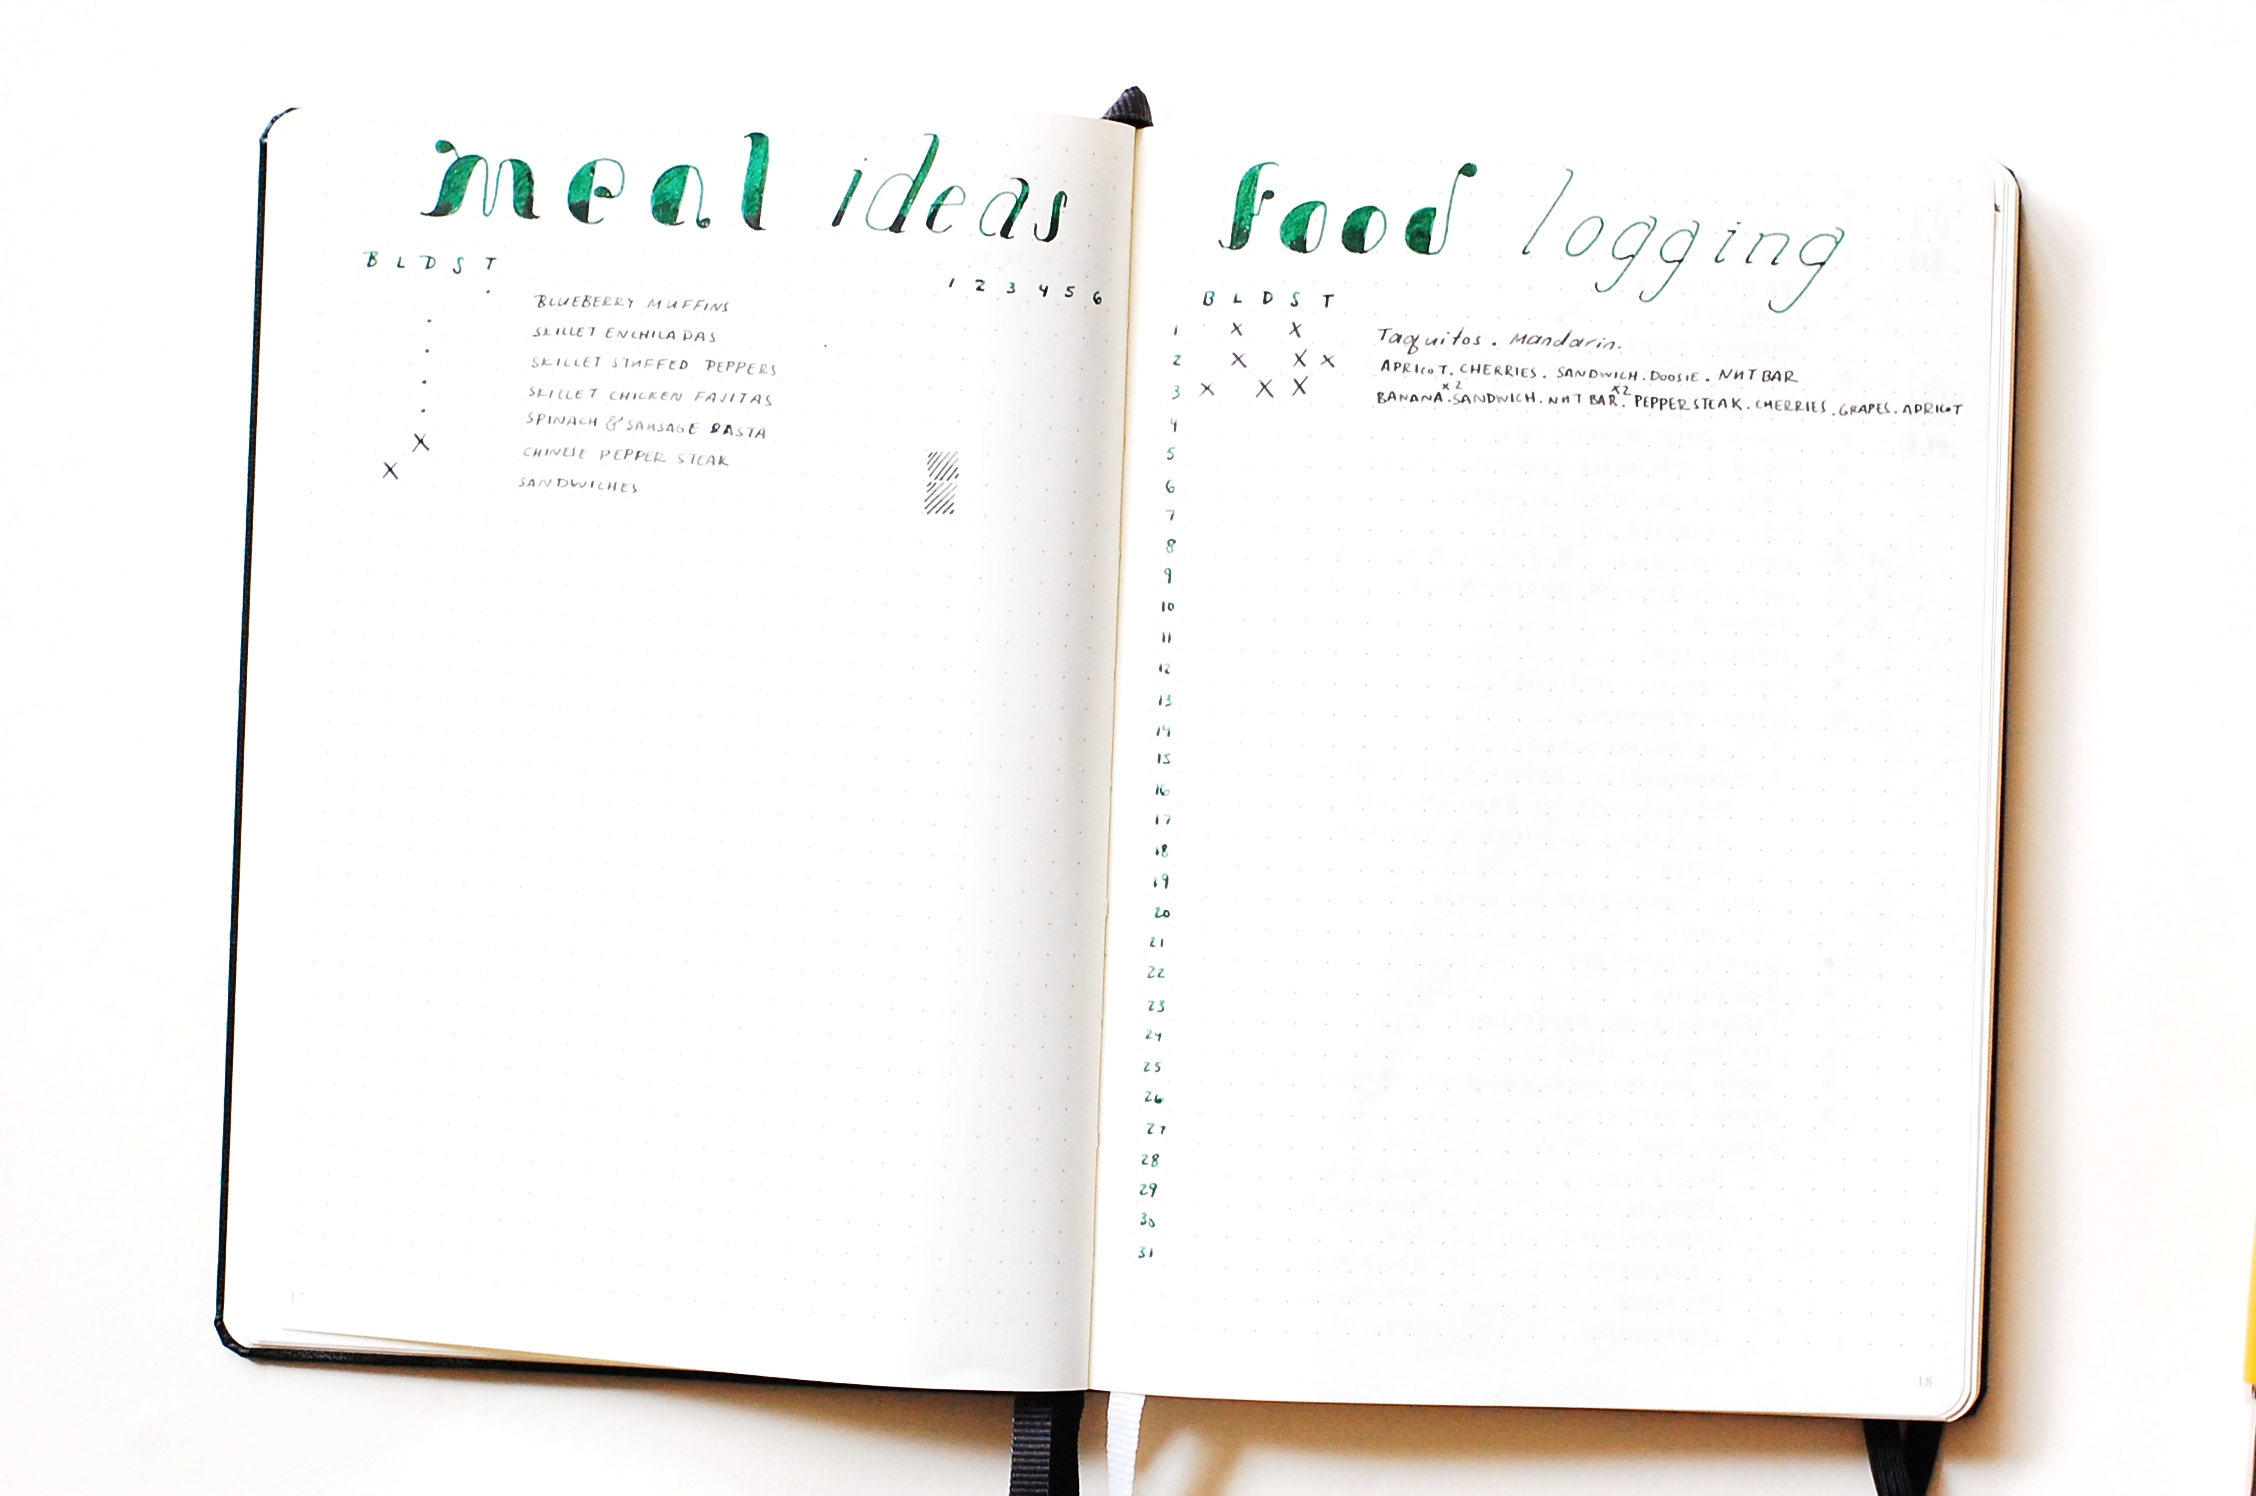 meal ideas
B L D S T
1 2 3 4 5 6
. BLUEBERRY MUFFINS
. SKILLET ENCHILADAS
. SKILLET STUFFED PEPPERS
. SKILLET CHICKEN FAJITAS
. SPINACH & SAUSAGE PASTA
X CHINESE PEPPER STEAK
X SANDWICHES
17
food logging
B L D S T
1 X X Taquitos. Mandarin.
2 X X X APRICOT. CHERRIES. SANDWICH. DOOSIE. NUT BAR
3 X X X BANANA. SANDWICH. X2 NUT BAR. X2 PEPPER STEAK. CHERRIES. GRAPES. APRICOT
4
5
6
7
8
9
10
11
12
13
14
15
16
17
18
19
20
21
22
23
24
25
26
27
28
29
30
31
18